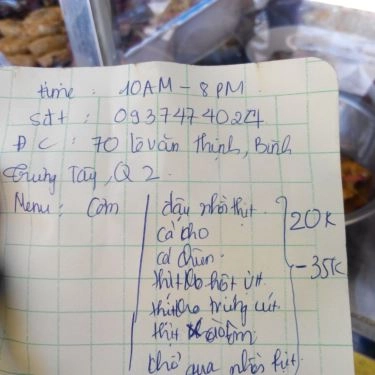 time : 10AM - 8PM
sđt : 0937474024
ĐC : 70 lê văn thịnh, Bình
Trưng Tây, Q2.
Menu : Cơm
đậu nhồi thịt.
cá kho
cá chiên.
thịt kho hột vịt.
thịt kho trứng cút.
thịt
khổ qua nhồi thịt.
20K
- 35K